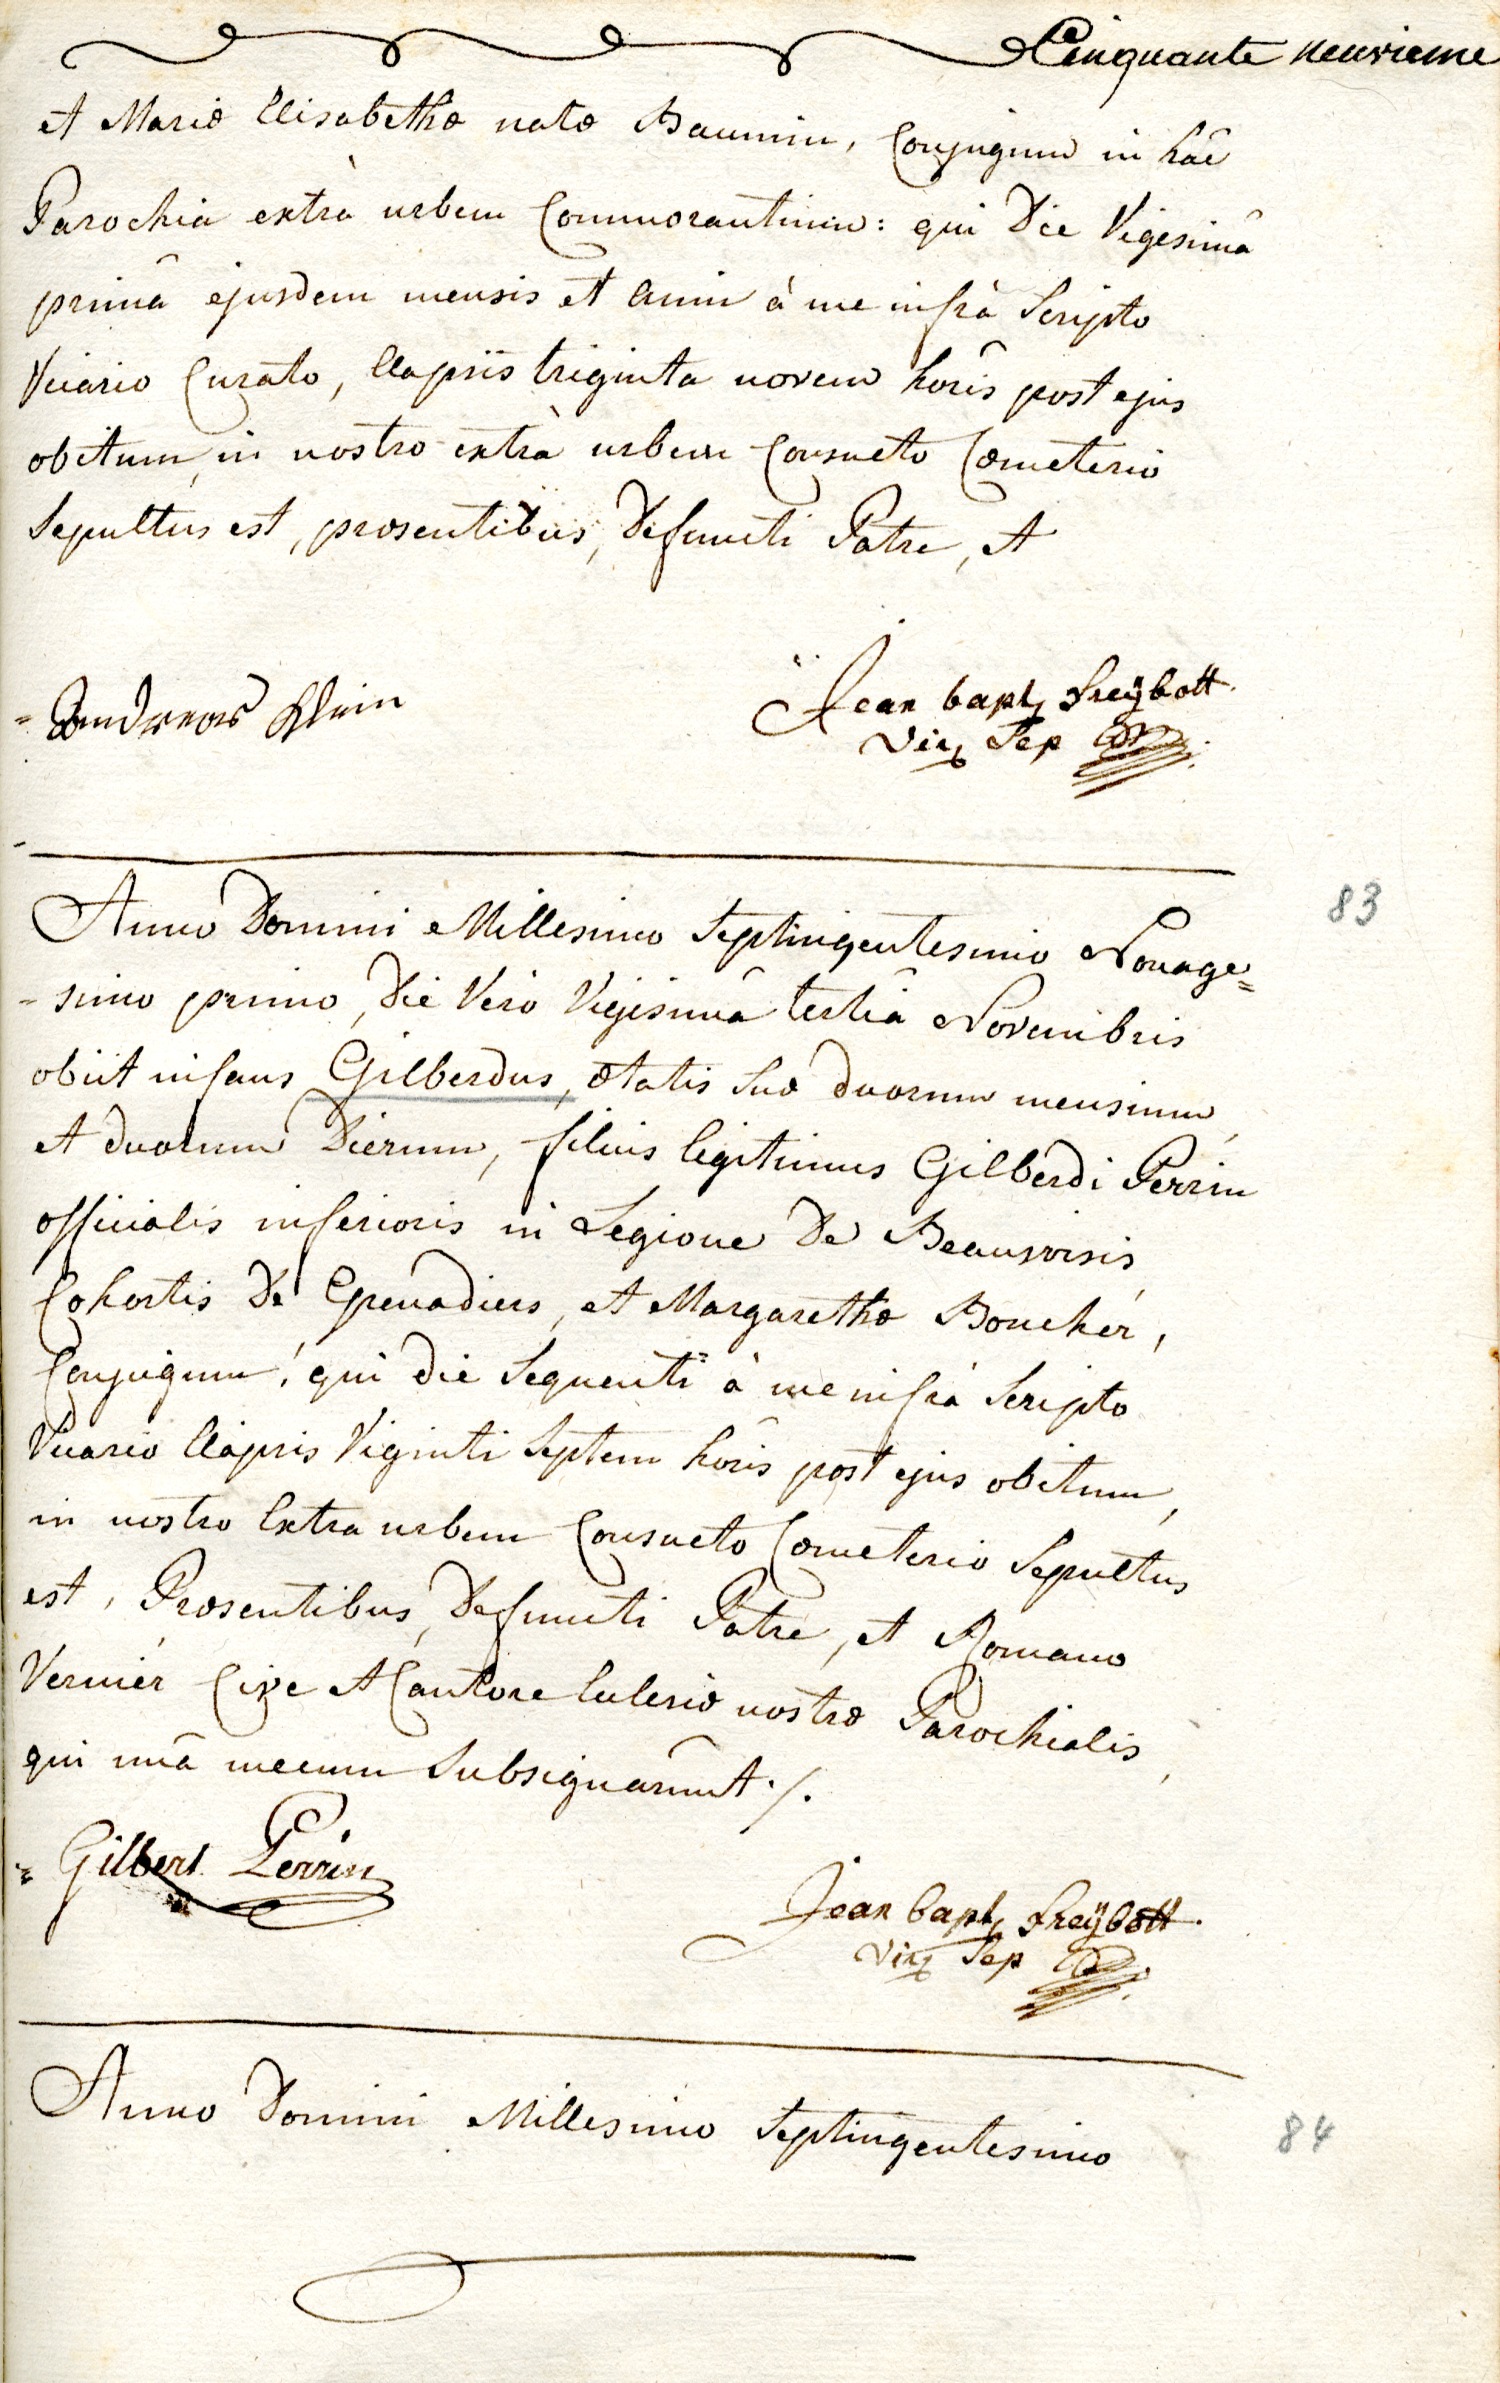 Cinquante neuvieme
et Mariæ Elisabethæ natæ Baumin, Conjugum in hâc
Parochiâ extrà urbem Commorantium: qui Die Vigesimâ
primâ ejusdem mensis et anni à me infrà Scripto
Vicario Curato, Elapsis triginta novem horis post ejus
obitum, in nostro extrà urbem Consueto Cœmeterio
Sepultus est, præsentibus, Defuncti Patre, et
= Andreas Klein
Jean bapt. freÿbott.
Vic. Sep
83
Anno Domini Millesimo Septingentesimo Nonage=
-simo primo, Die Verò Vigesimâ tertiâ Novembris
obiit infans Gilberdus, ætatis Suæ duorum mensium,
et duorum Dierum, filius legitimus Gilberdi Perrin
officialis inferioris in Legione De Beauvoisis,
Cohortis De Grenadiers, et Margarethæ Boucher,
Conjugum, qui die Sequenti à me infrà Scripto
Vicario Elapsis Viginti Septem horis post ejus obitum,
in nostro Extra urbem Consueto Cœmeterio Sepultus
est, Præsentibus, Defuncti Patre, et Romano
Vernier Cive et Cantore Ecclesiæ nostræ Parochialis,
qui unâ mecum Subsignarunt ./.
= Gilbert Perrin
Jean bapt. freÿbott.
Vic. Sep
84
Anno Domini Millesimo Septingentesimo